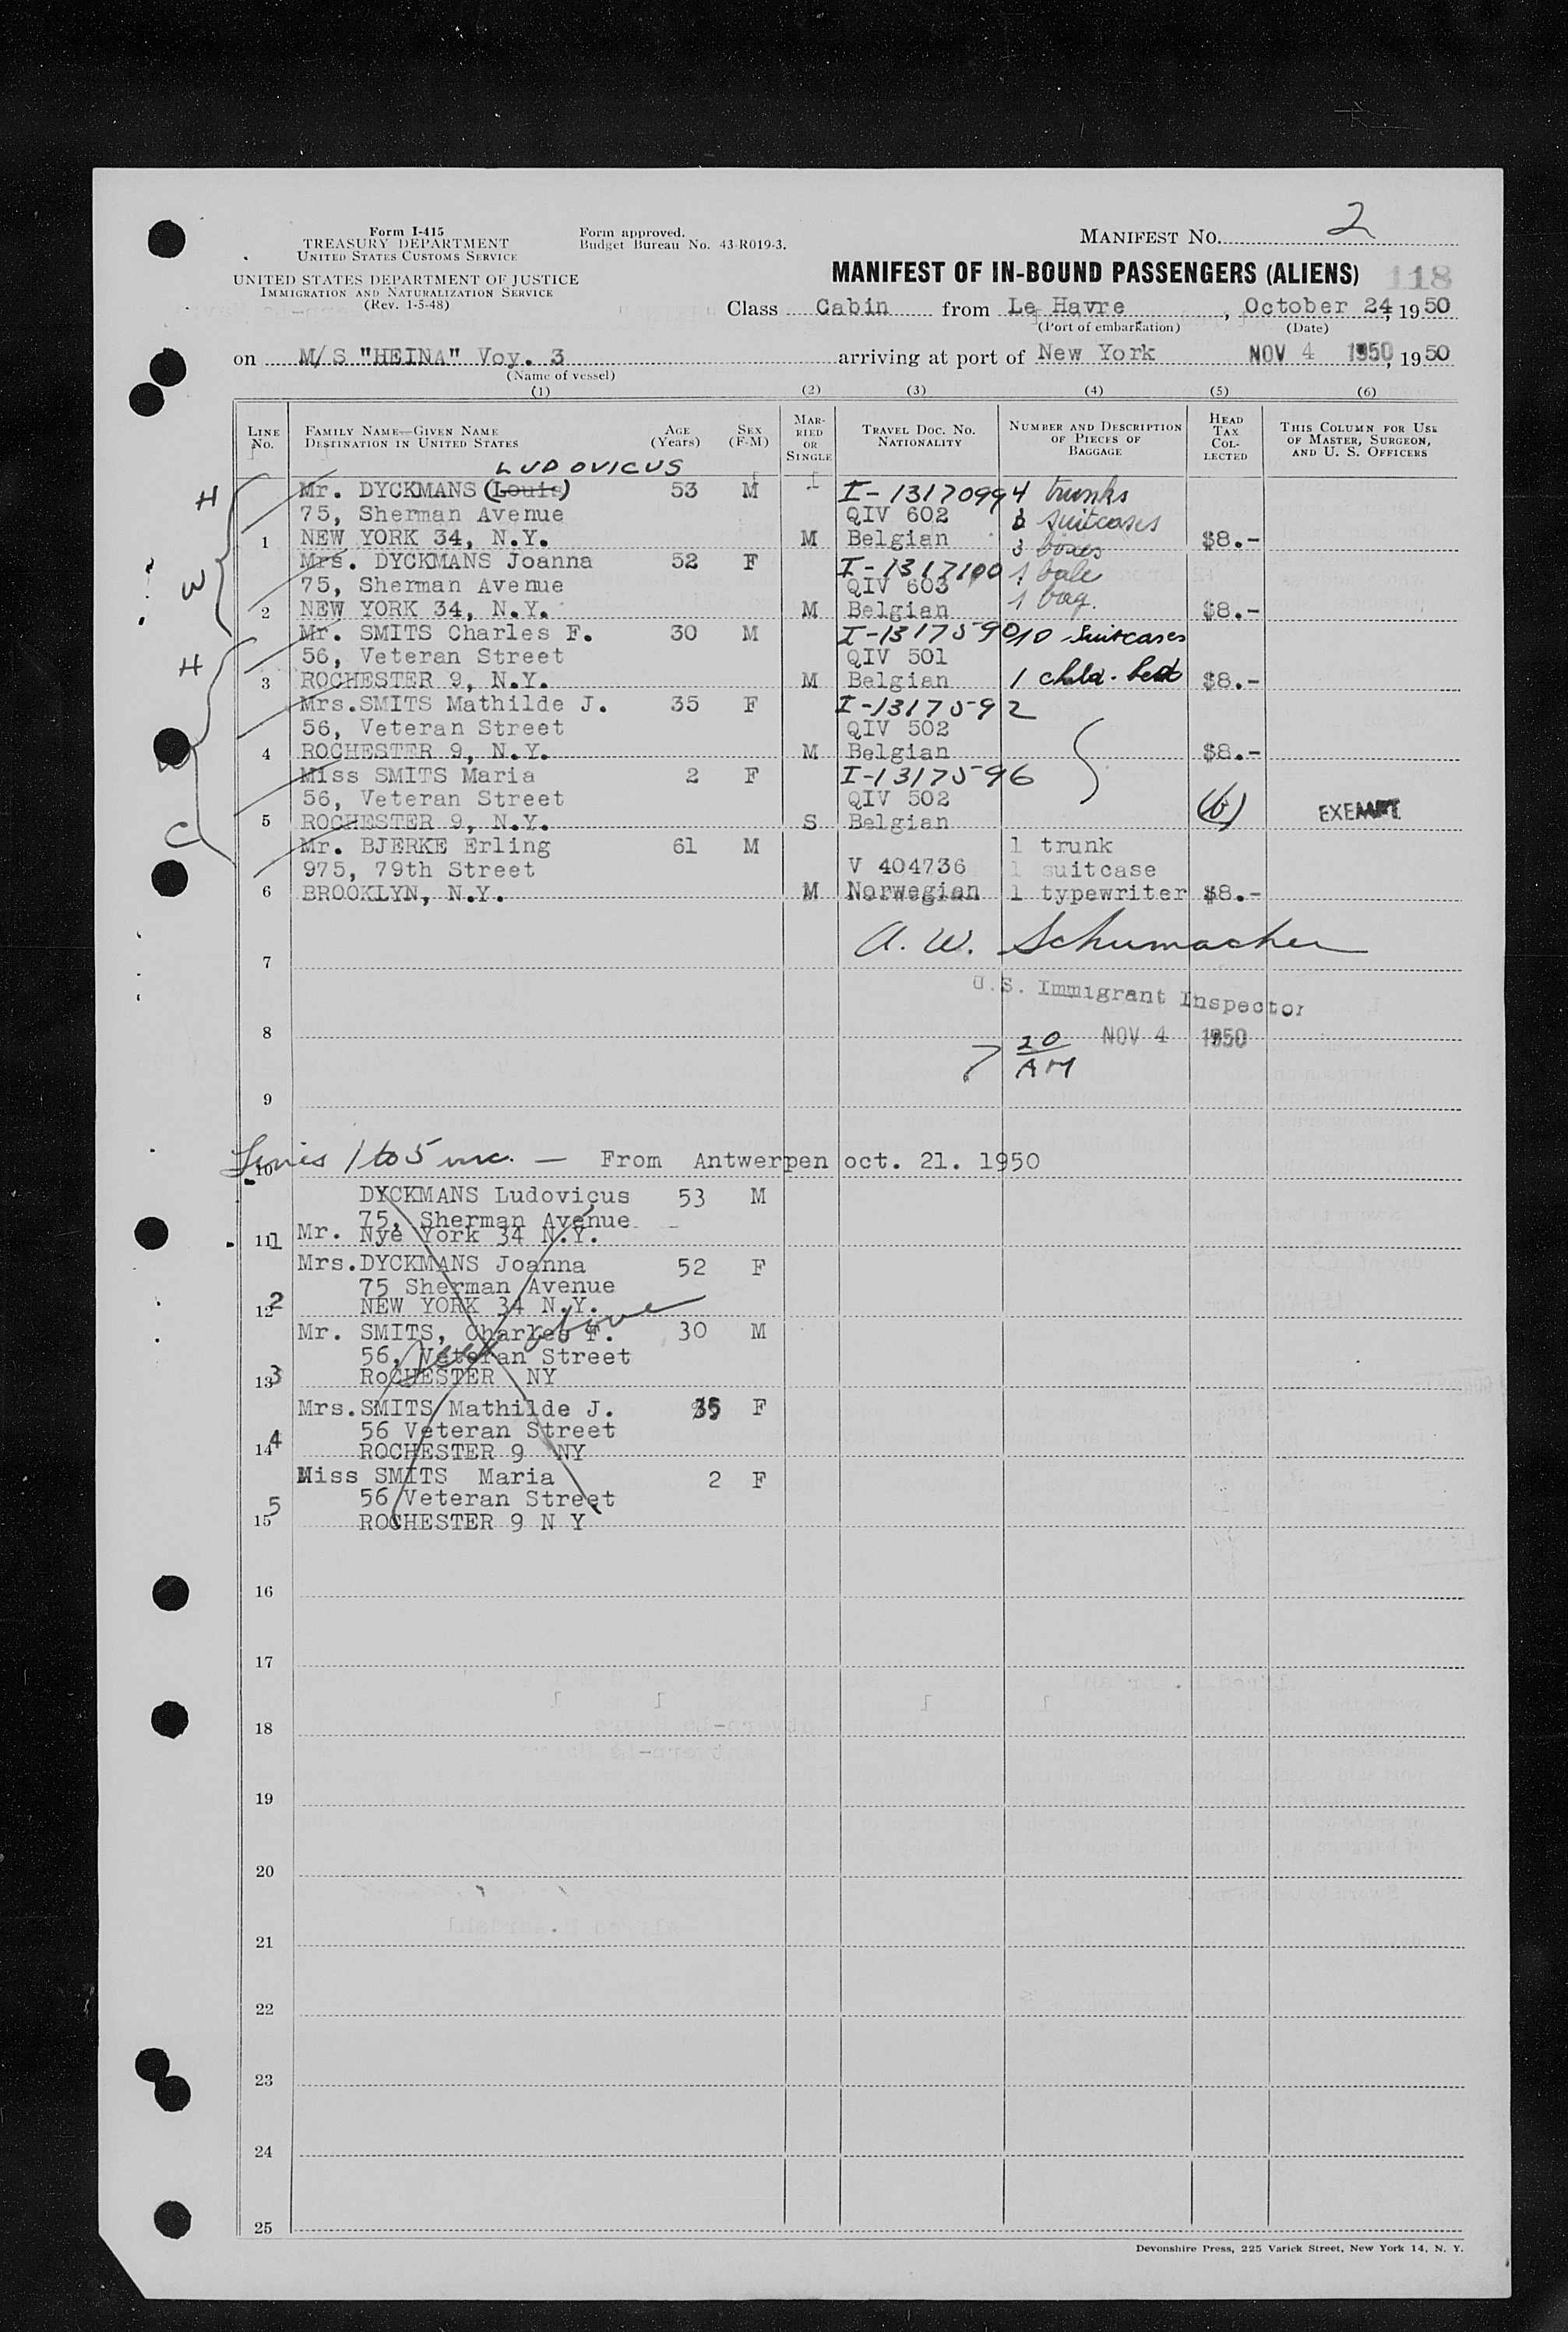 Form I-415
TREASURY DEPARTMENT
UNITED STATES CUSTOMS SERVICE
Form approved.
Budget Bureau No. 43-R019-3.
MANIFEST NO. 2
UNITED STATES DEPARTMENT OF JUSTICE
IMMIGRATION AND NATURALIZATION SERVICE
(Rev. 1-5-48)
MANIFEST OF IN-BOUND PASSENGERS (ALIENS) 118
Class Cabin from Le Havre, October 24, 1950
(Port of embarkation) (Date)
on M/S "HEINA" Voy. 3 arriving at port of New York NOV 4 1950, 1950
(Name of vessel)
(1) (2) (3) (4) (5) (6)
LINE No. FAMILY NAME—GIVEN NAME DESTINATION IN UNITED STATES AGE (Years) SEX (F-M) MARRIED OR SINGLE TRAVEL DOC. NO. NATIONALITY NUMBER AND DESCRIPTION OF PIECES OF BAGGAGE HEAD TAX COLLECTED THIS COLUMN FOR USE OF MASTER, SURGEON, AND U. S. OFFICERS
LUDOVICUS
H Mr. DYCKMANS (Louis) 53 M I-1317099 4 trunks
75, Sherman Avenue QIV 602 suitcases
1 NEW YORK 34, N.Y. M Belgian 3 boxes $8.-
W Mrs. DYCKMANS Joanna 52 F I-1317100 1 bale
75, Sherman Avenue QIV 603 1 bag.
2 NEW YORK 34, N.Y. M Belgian $8.-
H Mr. SMITS Charles F. 30 M I-1317590 10 suitcases
56, Veteran Street QIV 501
3 ROCHESTER 9, N.Y. M Belgian 1 chld. bed $8.-
Mrs.SMITS Mathilde J. 35 F I-1317592
56, Veteran Street QIV 502
4 ROCHESTER 9, N.Y. M Belgian $8.-
Miss SMITS Maria 2 F I-1317596
56, Veteran Street QIV 502 EXEMPT
C 5 ROCHESTER 9, N.Y. S Belgian
Mr. BJERKE Erling 61 M 1 trunk
975, 79th Street V 404736 1 suitcase
6 BROOKLYN, N.Y. M Norwegian 1 typewriter $8.-
A. W. Schumacher
7
U.S. Immigrant Inspector
8 NOV 4 1950
7 20 AM
9
10 Lines 1 to 5 inc. — From Antwerpen oct. 21. 1950
DYCKMANS Ludovicus 53 M
75, Sherman Avenue
11 1 Mr. Nye York 34 N.Y.
Mrs.DYCKMANS Joanna 52 F
75 Sherman Avenue
12 2 NEW YORK 34 N.Y.
See above
Mr. SMITS, Charles F. 30 M
56, Veteran Street
13 3 RoCHESTER NY
Mrs.SMITS Mathilde J. 35 F
56 Veteran Street
14 4 ROCHESTER 9 NY
Miss SMITS Maria 2 F
56 Veteran Street
15 5 ROCHESTER 9 N Y
16
17
18
19
20
21
22
23
24
25
Devonshire Press, 225 Varick Street, New York 14, N. Y.